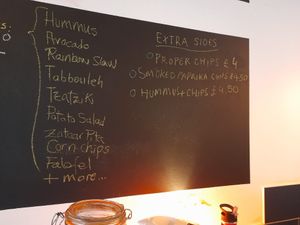 Hummus
Avocado
Rainbow Slaw
Tabbouleh
Tzatziki
Potato Salad
Zaatar Pita
Corn chips
Falafel
+ more...
EXTRA SIDES
PROPER CHIPS £4
SMOKED PAPRIKA CHIPS £4.50
HUMMUS + CHIPS £4.50